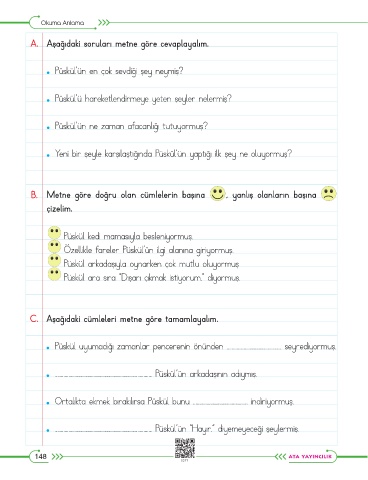 Okuma Anlama
A. Aşağıdaki soruları metne göre cevaplayalım.
Püskül'ün en çok sevdiği şey neymiş?
Püskül'ü hareketlendirmeye yeten şeyler nelermiş?
Püskül'ün ne zaman afacanlığı tutuyormuş?
Yeni bir şeyle karşılaştığında Püskül'ün yaptığı ilk şey ne oluyormuş?
B. Metne göre doğru olan cümlelerin başına , yanlış olanların başına
çizelim.
Püskül kedi mamasıyla besleniyormuş.
Özellikle fareler Püskül'ün ilgi alanına giriyormuş.
Püskül arkadaşıyla oynarken çok mutlu oluyormuş.
Püskül ara sıra "Dışarı çıkmak istiyorum." diyormuş.
C. Aşağıdaki cümleleri metne göre tamamlayalım.
Püskül uyumadığı zamanlar pencerenin önünden ........................ seyrediyormuş.
........................ Püskül'ün arkadaşının adıymış.
Ortalıkta ekmek bırakılırsa Püskül bunu ........................ indiriyormuş.
........................ Püskül'ün "Hayır." diyemeyeceği şeylermiş.
148
ATA YAYINCILIK